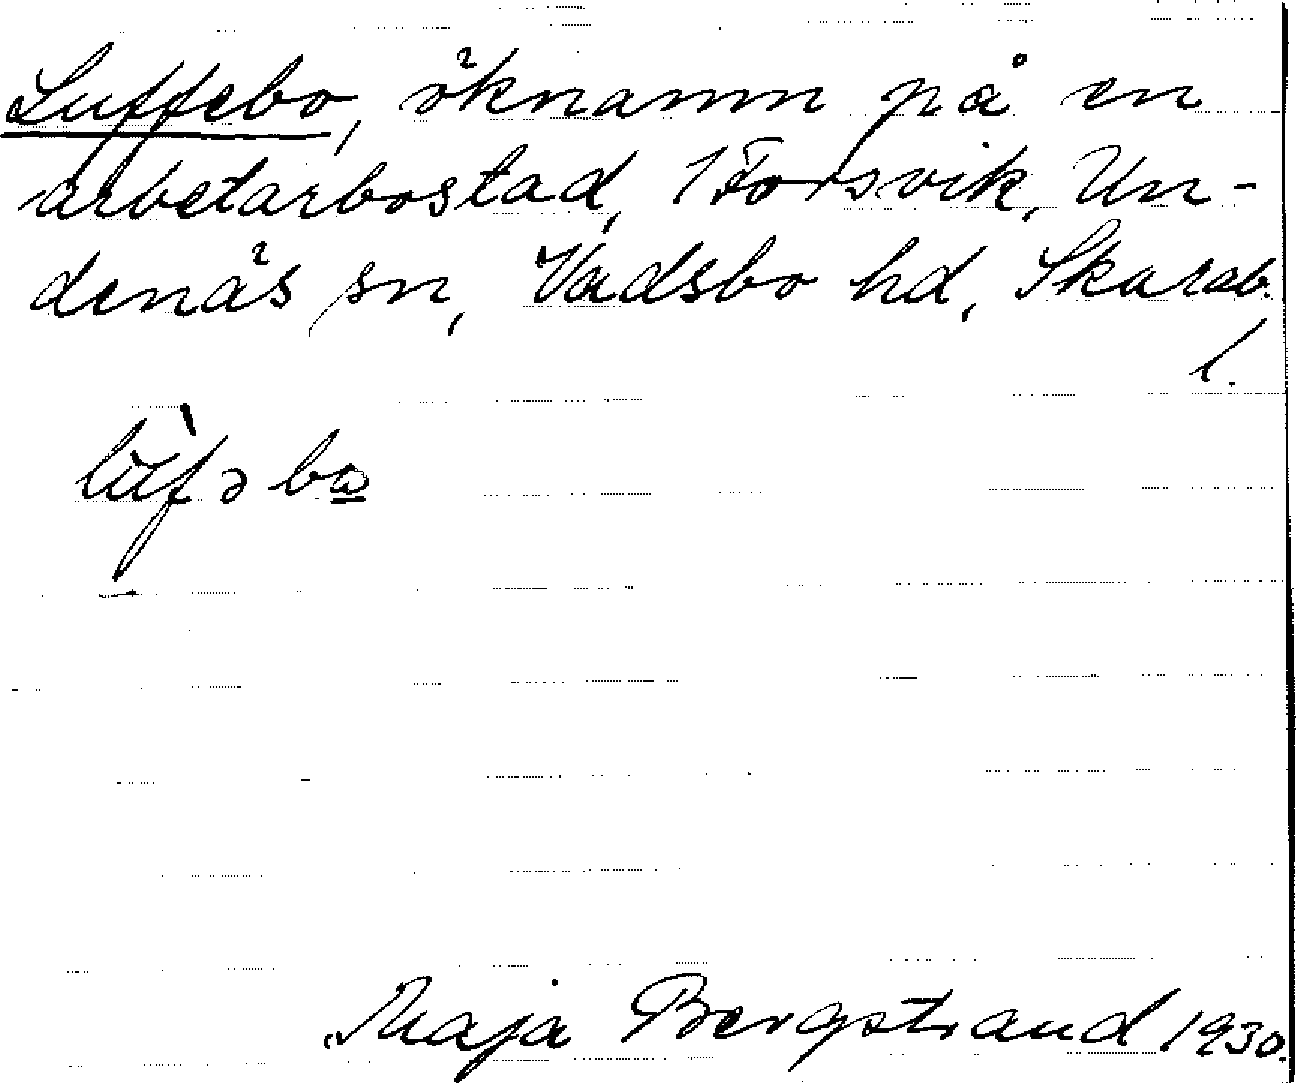 Luffebo, öknamn på en
arbetarbostad, 1 Forsvik, Un-
denäs sn, Vadsbo hd, Skarab.
l.
lùfəbo
Maja Bergstrand 1930.